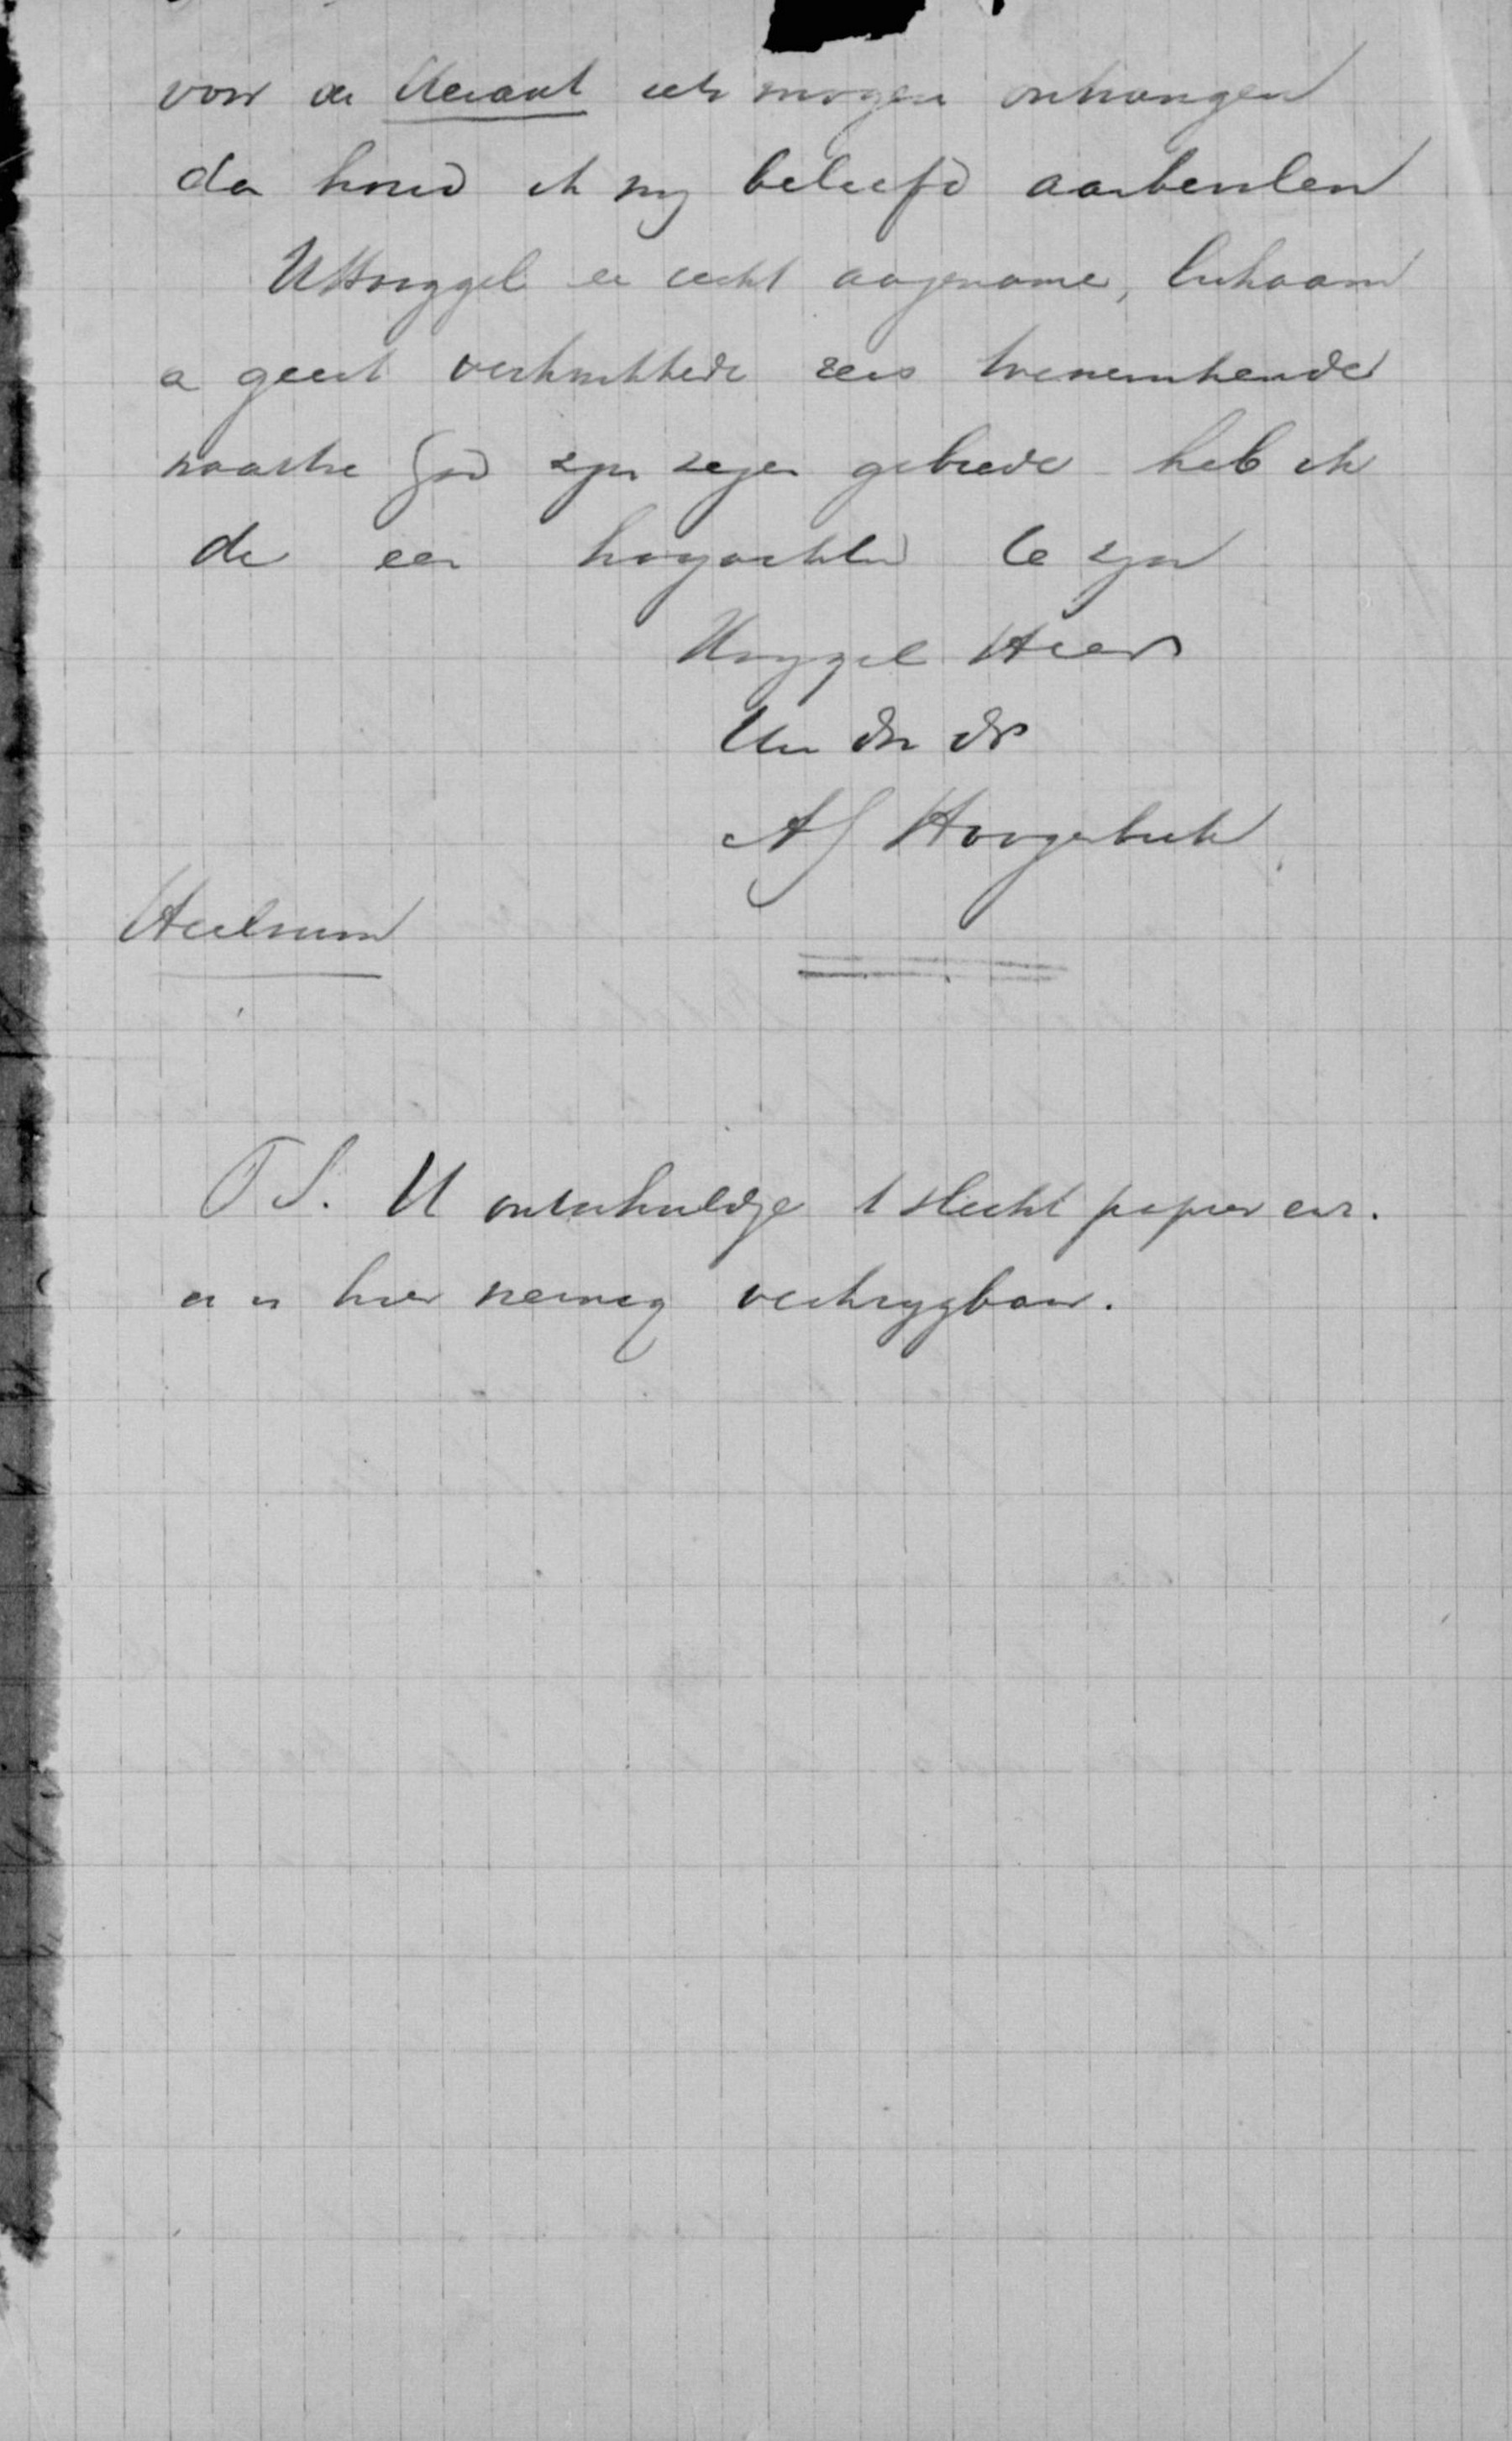 voor de Heraut iets mogen ontvangen
da houd ik mij beleefd aanbevolen
UHoggel ee recht aagename, lichaam
e geest verkwikkede reis toewenschende
waartoe God zijn zegen gebiede heb ik
de eer hoogachtend te zijn
Hoggel Heer
Uw dw dr
Hoogerbeek
Heelsum
P.S. U ontschuldige 't slecht papier enz.
er is hier weinig verkrijgbaar.